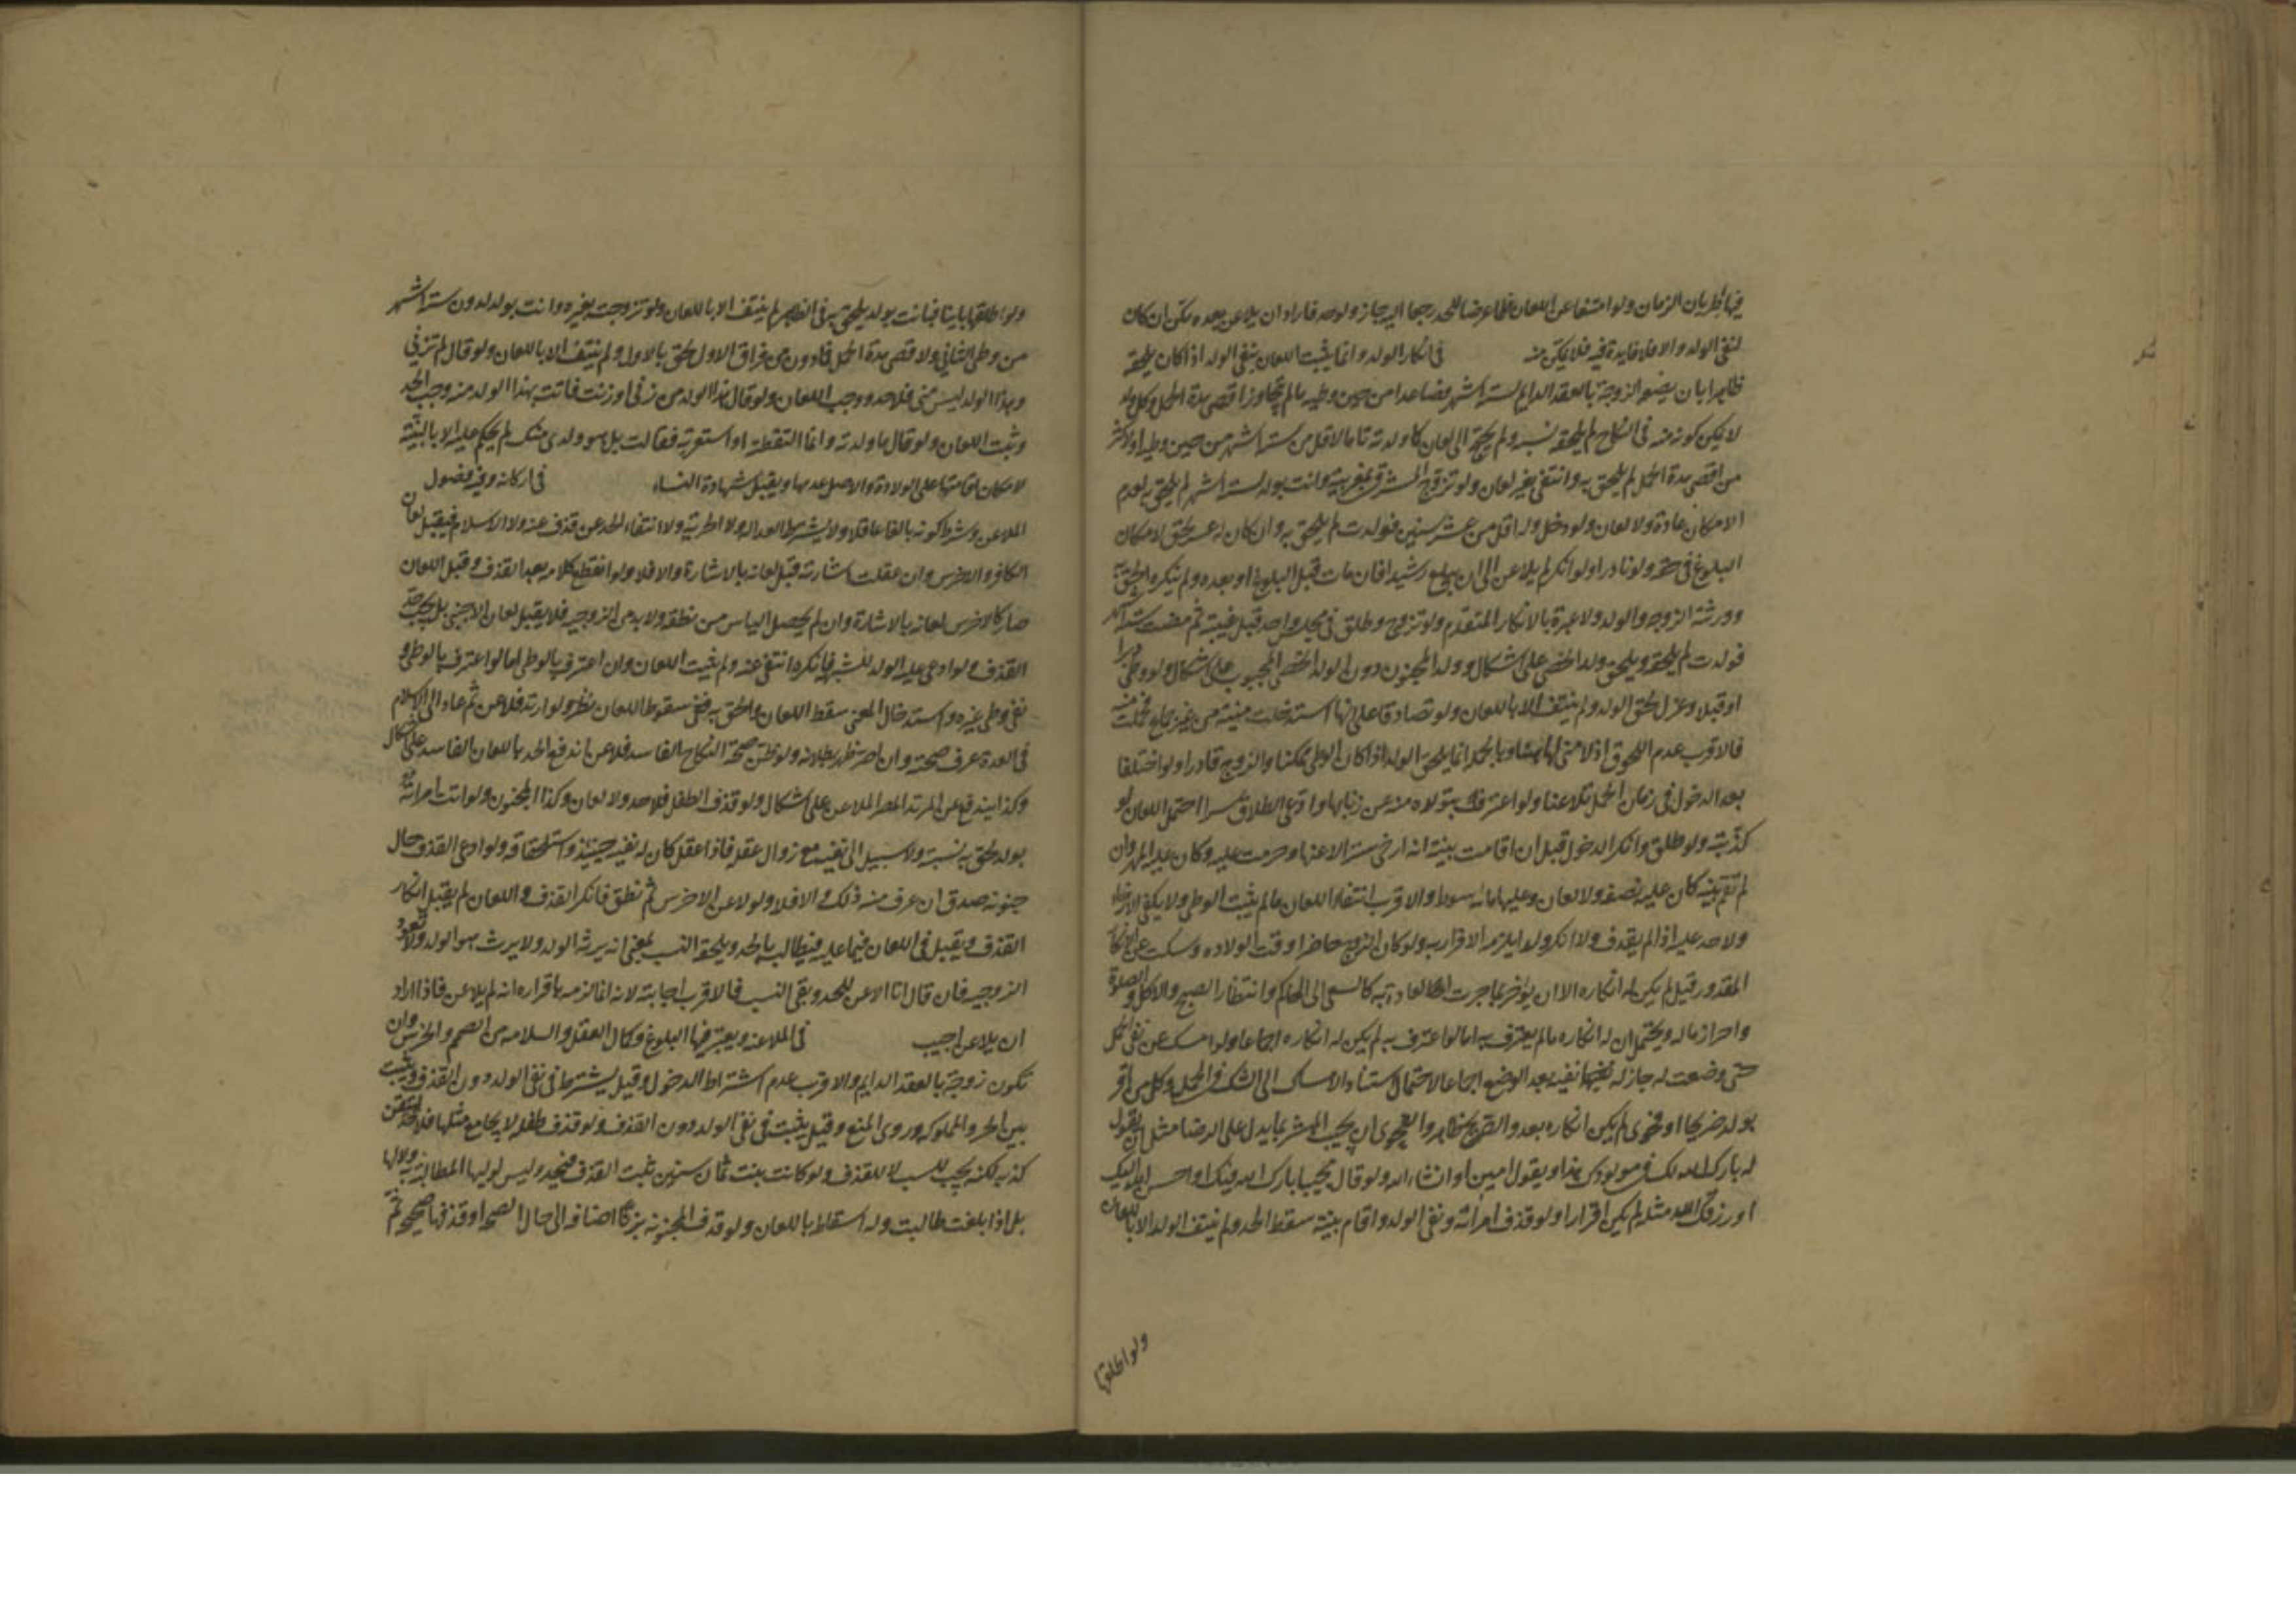 فيها لطريان الزمان ولو امتنعا عن اللعان فلما عرضا للحد رجعا اليه جاز ولو حد فاراد ان يلاعن بعده مكن ان كان
لنفي الولد والا فلا فايدة فيه فلا يمكن منه في انكار الولد وانما يثبت اللعان بنفي الولد اذا كان يلحقه
ظاهرا بان يضع الزوجة بالعقد الدايم لستة اشهر فصاعدا من حين وطيه ما لم يتجاوز اقصى مدة الحمل وكل ولد
لا يمكن كونه منه في النكاح لم يلحقه نسبه ولم يحتج الى لعان كما ولدته تاما لاقل من ستة اشهر من حين وطيه او لاكثر
من اقصى مدة الحمل لم يلحق به وانتفى بغير لعان ولو تزوج المشرقي بمغربية واتت بولد لستة اشهر لم يلحق به لعدم
الامكان عادة ولا لعان ولو دخل وله اقل من عشر سنين فولدت لم يلحق به وان كان له عشر لحق لامكان
البلوغ في حقه ولو نادرا ولو انكر لم يلاعن الى ان يبلغ رشيدا فان مات قبل البلوغ او بعده ولم ينكره الحق به
وورثته الزوجة والولد ولا عبرة بالانكار المتقدم ولو تزوج وطلق في مجلس واحد قبل غيبته ثم مضت ستة اشهر
فولدت لم يلحقه ويلحق ولد الخصي على اشكال وولد المجبوب دون ولد الخصي المجبوب على اشكال ولو وطى دبرا
او قبلا وعزل لحق الولد ولم ينتف الا باللعان ولو تصادقا على انها استدخلت منيه من غير جماع فحملت منه
فالاقرب عدم اللحوق اذ لا مني لها هنا وبالجملة انما يلحق الولد اذا كان الوطي ممكنا والزوج قادرا ولو اختلفا
بعد الدخول في زمان الحمل تلاعنا ولو اعترف بتولده منه عن زنا بها وادعى الطلاق سرا احتمل اللعان لو
كذبته ولو طلق وانكر الدخول قيل ان اقامت بينة انه ارخى سترا لاعنها وحرمت عليه وكان عليه المهر وان
لم تقم بينة كان عليه نصفه ولا لعان وعليها ماية سوط والاقرب انتفاء اللعان ما لم يثبت الوطي ولا يكفي الارخاء
ولا حد عليه اذا لم يقذف ولا انكر ولدا يلزمه الاقرار به ولو كان الزوج حاضرا وقت الولادة وسكت عن الانكار
المقدور قيل لم يكن له انكاره الا ان يؤخر بما جرت العادة به كالسعي الى الحاكم وانتظار الصبح والاكل والصلوة
واحراز ماله ويحتمل ان له انكاره ما لم يعترف به اما لو اعترف به لم يكن له انكاره اجماعا ولو امسك عن نفي الحمل
حتى وضعت له جاز له نفيه بعد الوضع اجماعا لاحتمال استناد الامساك الى الشك في الحمل وكل من اقر
بولد صريحا او فحوى لم يكن له انكاره بعد والصريح ظاهر والفحوى ان يجيب المبشر بما يدل على الرضا مثل ان يقول
له بارك الله لك في مولودك هذا ويقول امين او انشاء الله ولو قال مجيبا بارك الله فيك او احسن الله اليك
او رزقك الله مثله لم يكن اقرارا ولو قذف امراته ونفى الولد واقام بينة سقط الحد ولم ينتف الولد الا باللعان
ولو طلقها
ولو طلقها باينا فاتت بولد يلحق به في الظاهر لم ينتف الا باللعان ولو تزوجت بغيره واتت بولد لدون ستة اشهر
من وطى الثاني ولاقصى مدة الحمل فما دون من فراق الاول لحق بالاول ولم ينتف الا باللعان ولو قال لم تزني
وهذا الولد ليس مني فلا حد ووجب اللعان ولو قال هذا الولد من زنى او زنت فاتت بهذا الولد منه وجب الحد
وثبت اللعان ولو قال ما ولدته وانما التقطته او استعرته فقالت بل هو ولدي منك لم يحكم عليه الا بالبينة
لامكان اقامتها على الولادة والاصل عدمها ويقبل شهادة النساء في اركانه وفيه فصول
الملاعن وشرط كونه بالغا عاقلا ولا يشترط العدالة ولا الحرية ولا انتفاء الحد عن قذف عنه ولا الاسلام فيقبل لعان
الكافر والاخرس وان عقلت اشارته قبل لعانه بالاشارة والا فلا ولو انقطع كلامه بعد القذف وقبل اللعان
صار كالاخرس لعانه بالاشارة وان لم يحصل الياس من نطقه ولا بد من الزوجية فلا يقبل لعان الاجنبي بل يجب حد
القذف ولو ادعي عليه الولد للشبهة فانكره انتفى عنه ولم يثبت اللعان وان اعترف بالوطي اما لو اعترف بالوطي و
نفى وطى غيره واستدخال المني سقط اللعان والحق به ففي سقوط اللعان نظر ولو ارتد فلاعن ثم عاد الى الاسلام
في العدة عرف صحته وان اصر ظهر بطلانه ولو ظن صحة النكاح الفاسد فلاعن اندفع الحد باللعان الفاسد على اشكال
وكذا يندفع عن المرتد المصر الملاعن على اشكال ولو قذف الطفل فلا حد ولا لعان وكذا المجنون ولو اتت امراته
بولد لحق به نسبه ولا سبيل الى نفيه مع زوال عقله فاذا عقل كان له نفيه حينئذ واستلحاقه ولو ادعى القذف حال
جنونه صدق ان عرف منه ذلك والا فلا ولو لاعن الاخرس ثم نطق فانكر القذف واللعان لم يقبل انكار
القذف ويقبل في اللعان فيما عليه فيطالب بالحد ويلحقه النسب بمعنى انه يرثه الولد ولا يرث هو الولد ولا تعود
الزوجية فان قال انا الاعن للحد وبقى النسب فالاقرب اجابته لانه انما لزمه باقراره انه لم يلاعن فاذا اراد
ان يلاعن اجيب في الملاعنة ويعتبر فيها البلوغ وكمال العقل والسلامة من الصمم والخرس وان
تكون زوجة بالعقد الدايم والاقرب عدم اشتراط الدخول وقيل يشترط في نفي الولد دون القذف ويثبت
بين الحر والمملوكة وروى المنع وقيل يثبت في نفي الولد دون القذف ولو قذف طفلة لا يجامع مثلها فلا حد لتيقن
كذبه لكنه يجب للسب لا للقذف ولو كانت بنت ثمان سنين ثبت القذف فيحد وليس لوليها المطالبة به ولا لها
بل اذا بلغت طالبت وله اسقاطه باللعان ولو قذف المجنونة بزنا اضافه الى حال الصحة او قذفها صحيحة ثم